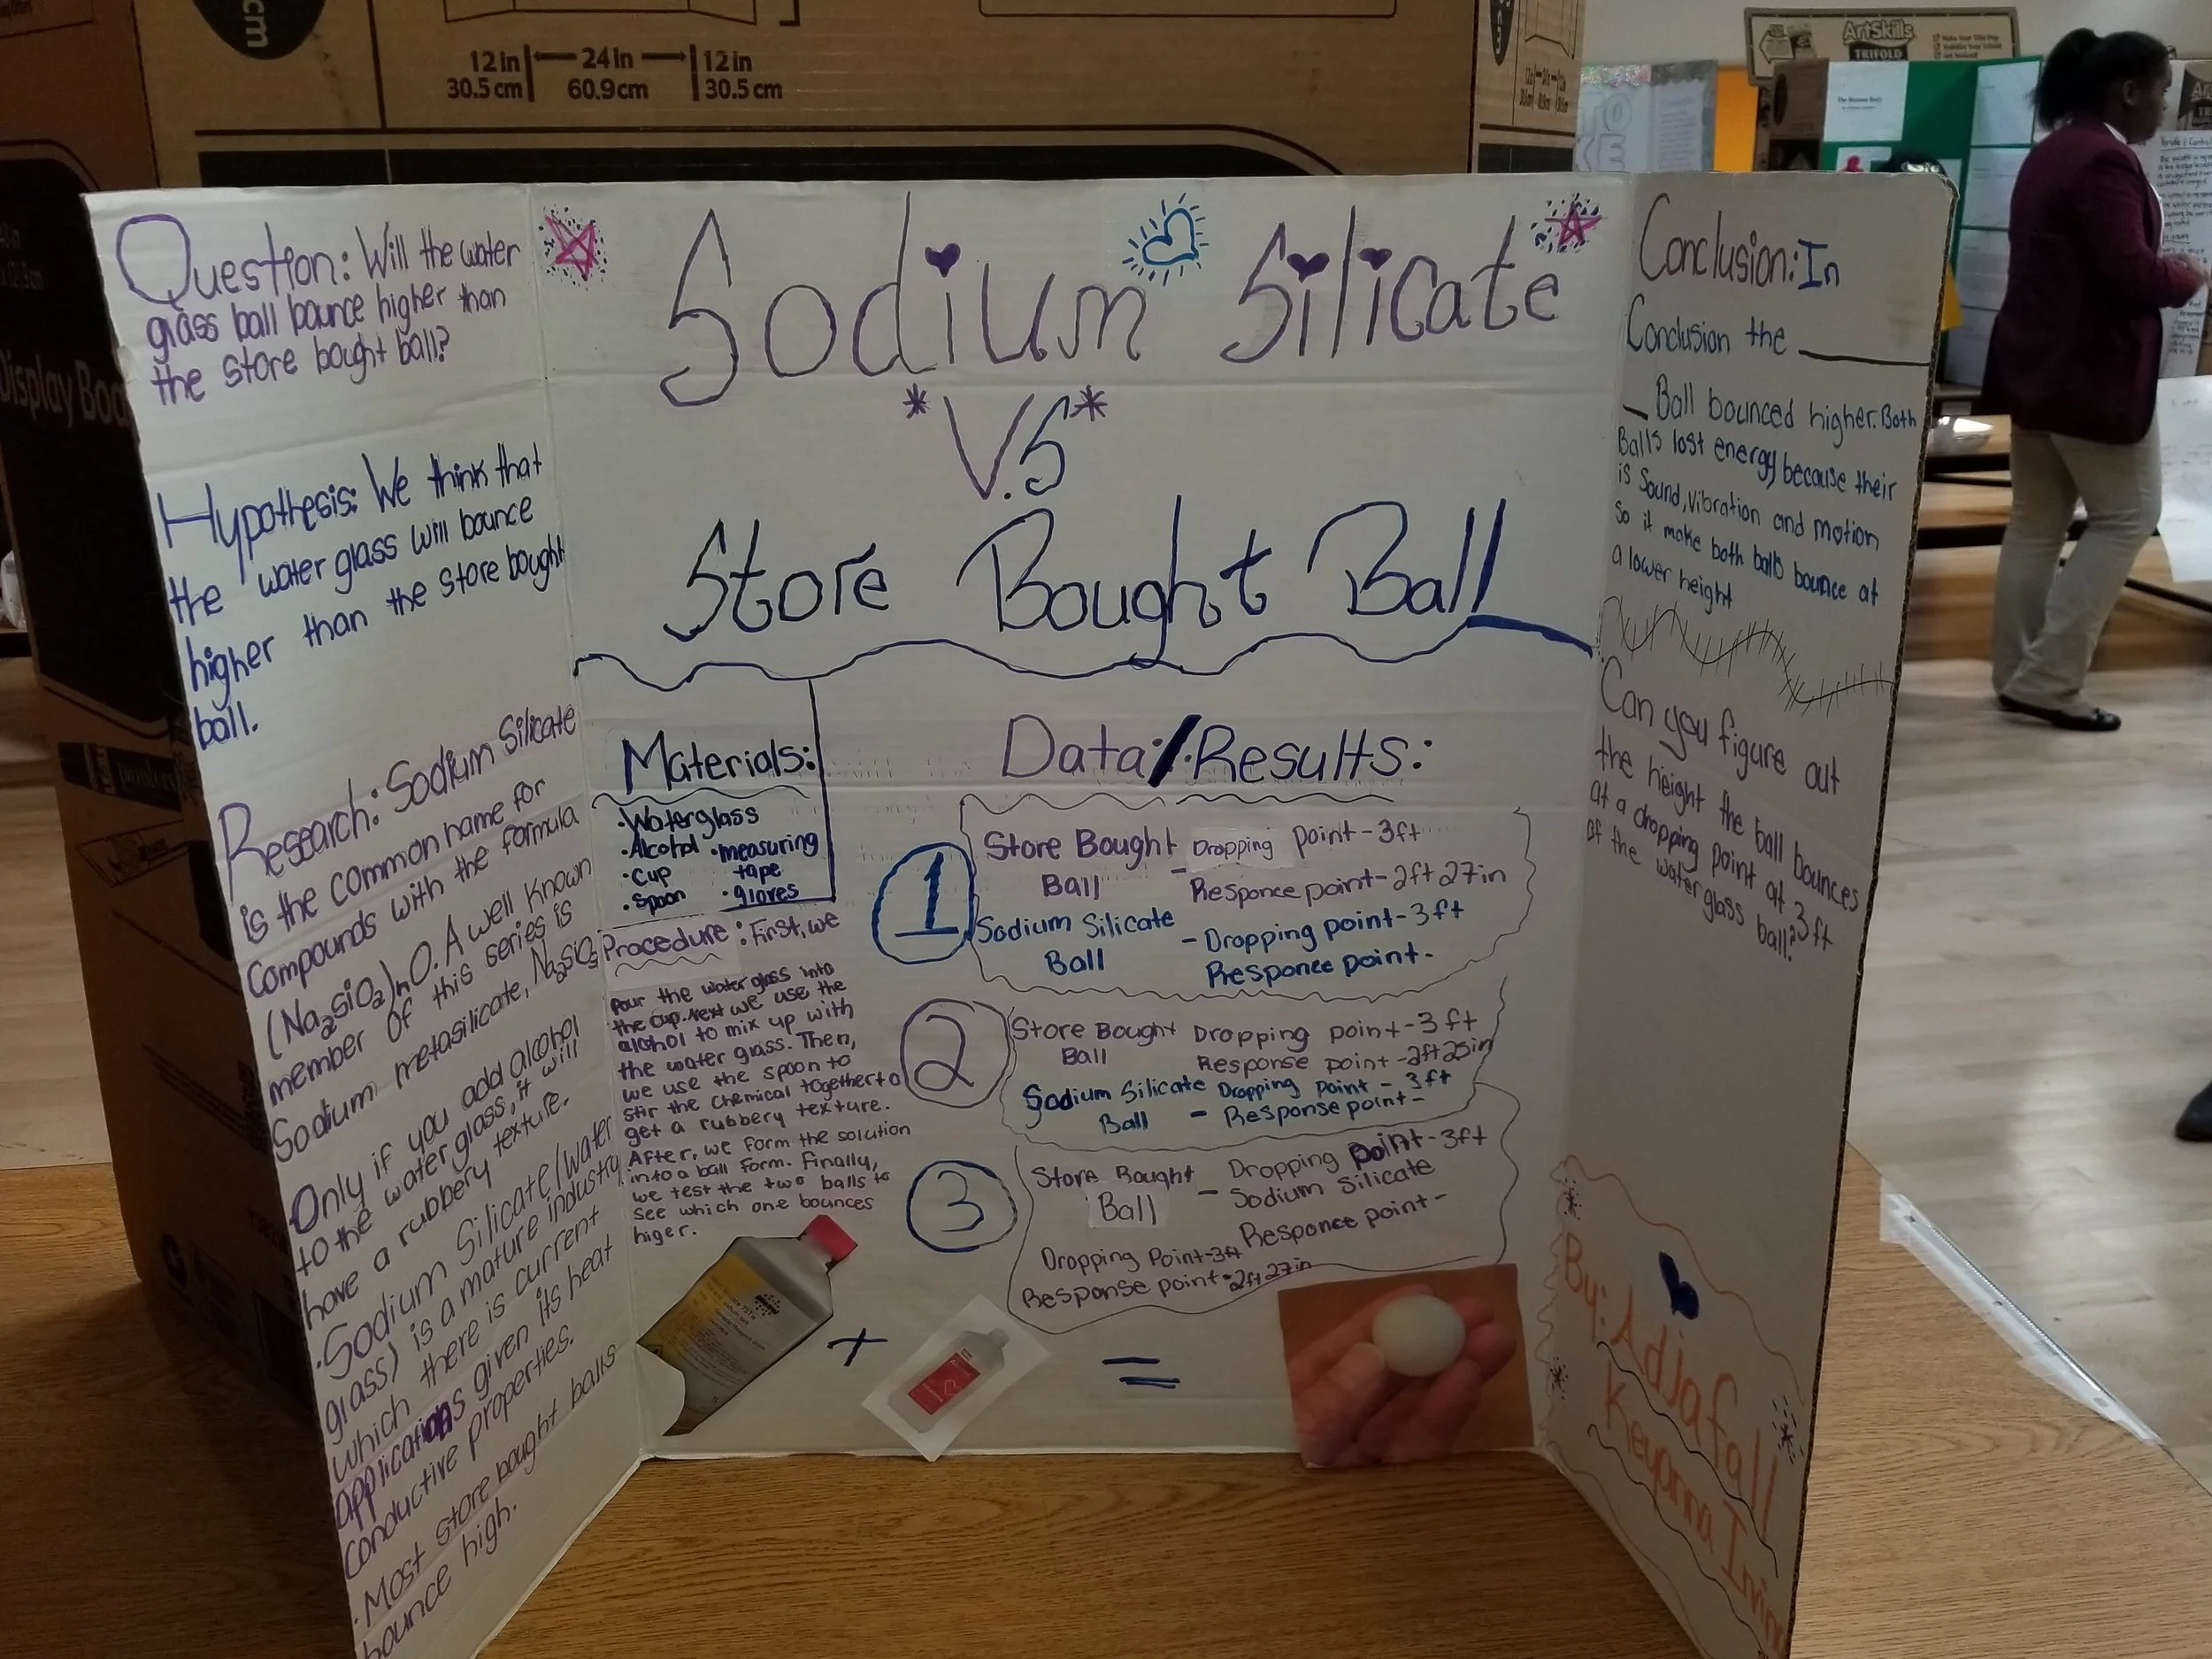 12in 24in 12in
30.5cm 60.9cm 30.5cm
cm
ArtSkills
TRIFOLD
Question: Will the water
glass ball bounce higher than
the store bought ball?
Hypothesis: We think that
the water glass will bounce
higher than the store bought
ball.
Research: Sodium Silicate
is the common name for
Compounds with the formula
(Na₂SiO₂)nO. A well known
member of this series is
Sodium metasilicate, Na₂SiO₃
Only if you add alcohol
to the water glass, it will
have a rubbery texture.
·Sodium Silicate/(water
glass) is a mature industry
which there is current
applications given its heat
conductive properties.
·Most store bought balls
bounce high.
Sodium Silicate
*V.S*
Store Bought Ball
Materials:
·Waterglass
·Alcohol ·measuring
·Cup tape
·Spoon ·gloves
Procedure: First, we
pour the water glass into
the cup. Next we use the
alcohol to mix up with
the water glass. Then,
we use the spoon to
stir the chemical together to
get a rubbery texture.
After, we form the solution
into a ball form. Finally,
we test the two balls to
see which one bounces
higer.
Data/Results:
1
Store Bought Dropping point-3ft
Ball - Responce point-2ft 27in
Sodium Silicate - Dropping point-3ft
Ball Responce point-
2
Store Bought Dropping point-3ft
Ball Response point-2ft 25in
Sodium Silicate Dropping Point - 3ft
Ball - Response point-
3
Store Bought Dropping point-3ft
Ball - Sodium Silicate
Responce point-
Dropping Point-3ft
Response point-2ft 27in
Conclusion: In
Conclusion the
Ball bounced higher. Both
Balls lost energy because their
is Sound, Vibration and motion
So it make both balls bounce at
a lower height
Can you figure out
the height the ball bounces
at a dropping point at 3ft
of the waterglass ball?
By: Adjafall
Keyonna